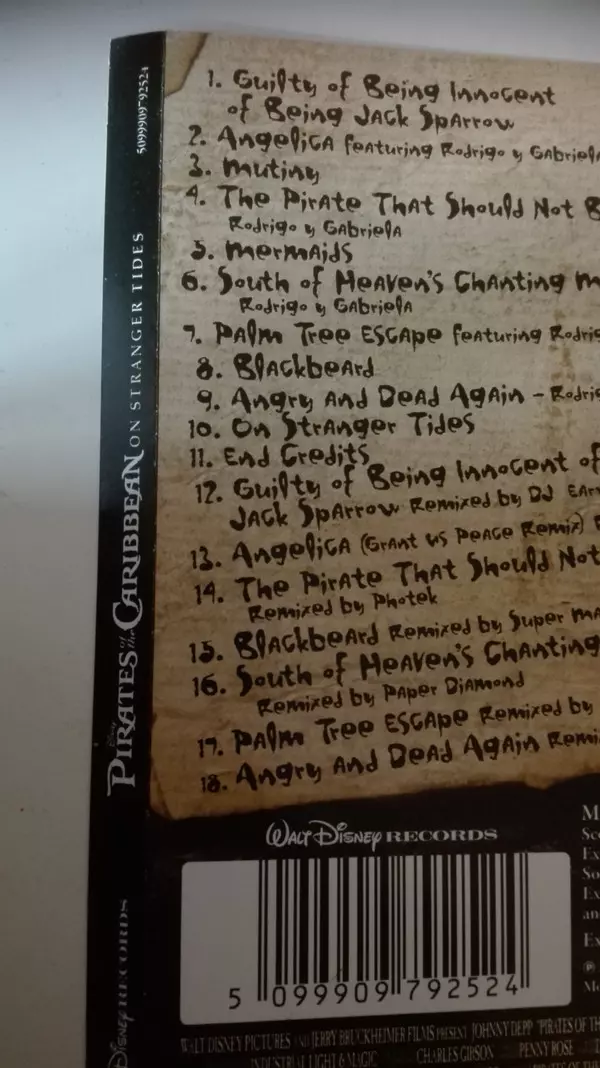 5099909-92524
DISNEY
PIRATES OF THE CARIBBEAN ON STRANGER TIDES
DISNEY RECORDS
1. Guilty of Being Innocent
of Being Jack Sparrow
2. Angelica featuring Rodrigo y Gabriela
3. Mutiny
4. The Pirate That Should Not B
Rodrigo y Gabriela
5. Mermaids
6. South of Heaven's Chanting M
Rodrigo y Gabriela
7. Palm Tree Escape featuring Rodrig
8. Blackbeard
9. Angry and Dead Again - Rodrig
10. On Stranger Tides
11. End Credits
12. Guilty of Being Innocent of
Jack Sparrow Remixed by DJ Ear
13. Angelica (Grant vs Peace Remix)
14. The Pirate That Should Not
Remixed by Photek
15. Blackbeard Remixed by Super Ma
16. South of Heaven's Chanting
Remixed by Paper Diamond
17. Palm Tree Escape Remixed by
18. Angry and Dead Again Remi
WALT DISNEY RECORDS
M
Sco
Ex
So
Ex
an
Ex
℗
Mo
5 099909 792524
WALT DISNEY PICTURES AND JERRY BRUCKHEIMER FILMS PRESENT JOHNNY DEPP "PIRATES OF TH
INDUSTRIAL LIGHT & MAGIC CHARLES GIBSON PENNY ROSE